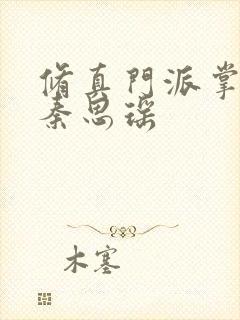 脩真門派掌
秦思瑶
木塞